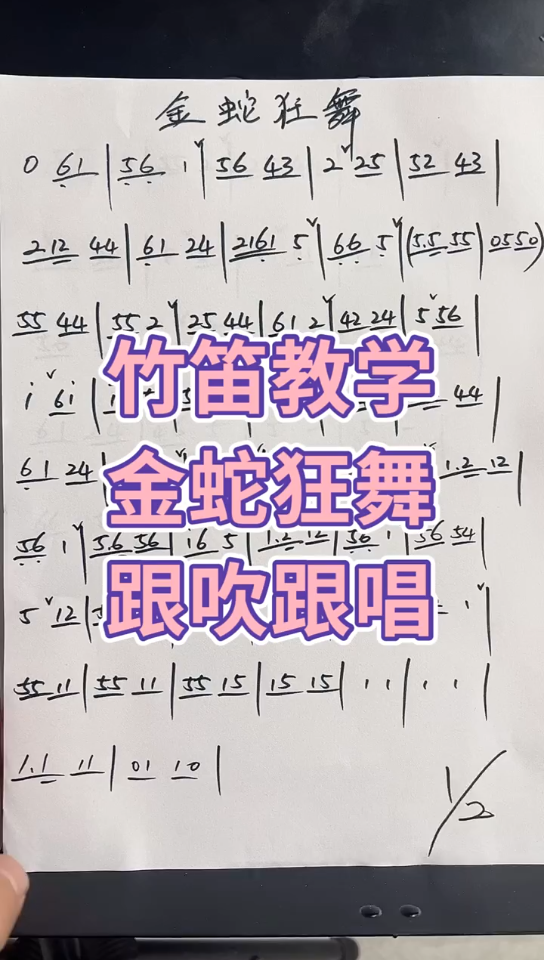 金蛇狂舞
0 61 | 56 1 | 56 43 | 2 25 | 52 43 |
212 44 | 61 24 | 2161 5 | 66 5 | (5.5 55 | 0550)
55 44 | 55 2 | 25 44 | 61 2 | 42 24 | 5 56 |
竹笛教学
i 6i | 44 |
61 24 | 1.2 12 |
金蛇狂舞
56 1 | 5.6 56 | i6 5 | 1.2 12 | 56 1 | 56 54 |
跟吹跟唱
5 12 | 1 |
55 11 | 55 11 | 55 15 | 15 15 | 1 1 | 1 1 |
1.1 11 | 01 10 |
1/2